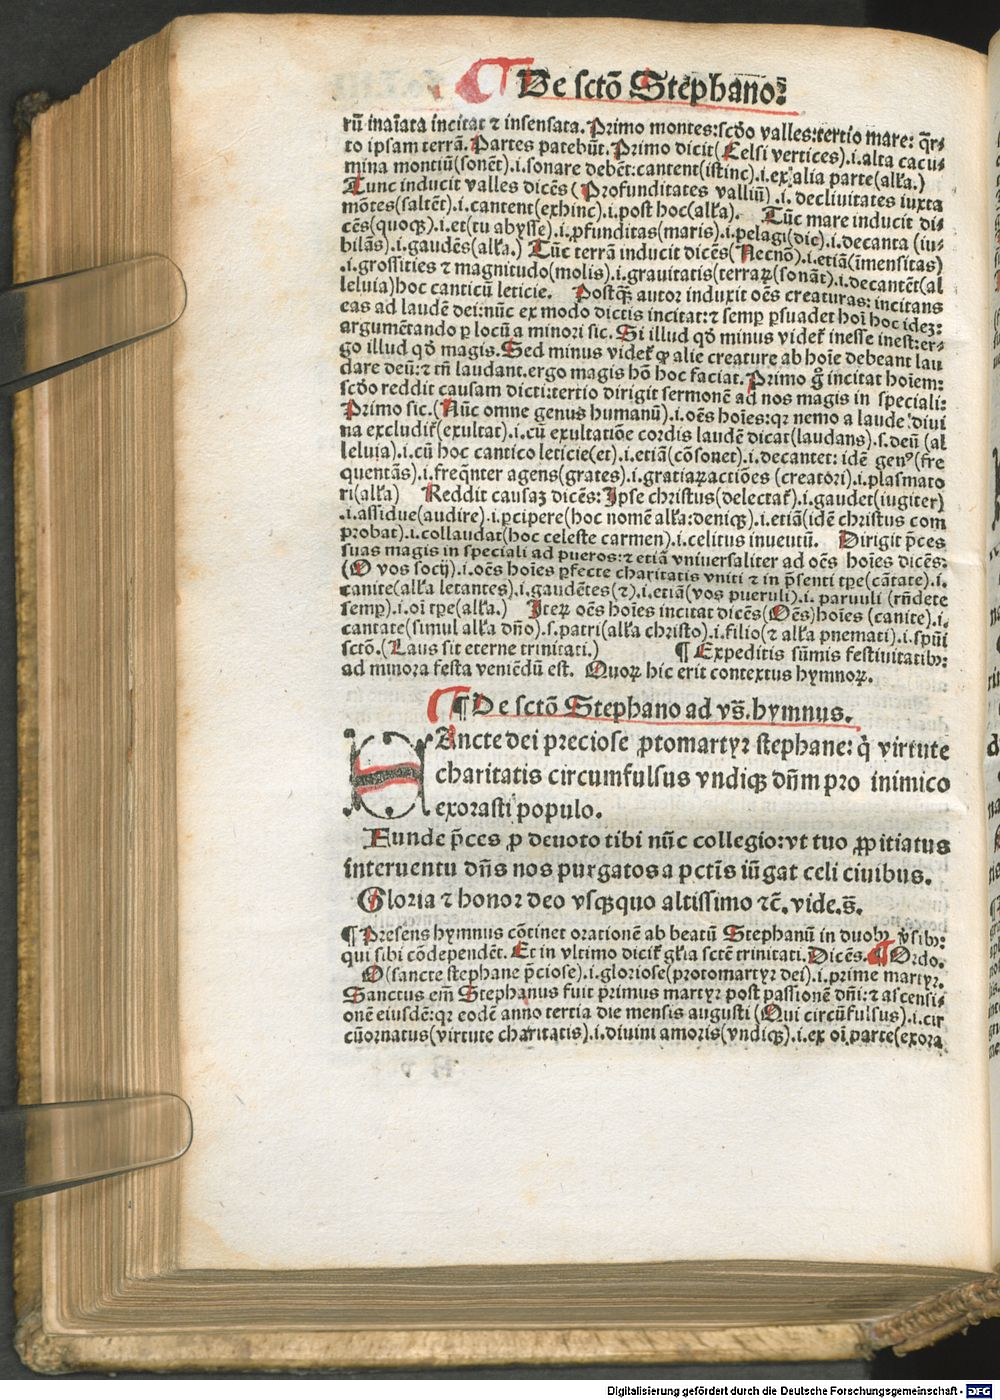 ¶ De sctō Stephano.
rū inaīata incitat ⁊ insensata. Primo montes:scd̄o valles:tertio mare: q̄r-
to ipsam terrā. Partes patebūt. Primo dicit(Celsi vertices).i.alta cacu-
mina montiū(sonēt).i.sonare debēt:cantent(istinc).i.ex alia parte(alła.)
Tunc inducit valles dicēs (Profunditates valliū) .i. decliuitates iuxta
mōtes(saltēt).i.cantent(exhinc).i.post hoc(alła). Tūc mare inducit di-
cēs(quoqꝫ).i.et(tu abysse).i.ꝓfunditas(maris).i.pelagi(dic).i.decanta (iu-
bilās).i.gaudēs(alła.) Tūc terrā inducit dicēs(Necnō).i.etiā(īmensitas)
.i.grossities ⁊ magnitudo(molis).i.grauitatis(terraꝝ(sonāt).i.decantēt(al
leluia)hoc canticū leticie. Postqꝫ autor induxit oēs creaturas: incitans
eas ad laudē dei:nūc ex modo dictis incitat:⁊ semꝑ ꝑsuadet hoī hoc idez:
argumētando ꝑ locū a minori sic. Si illud qd̄ minus videt̃ inesse inest:er-
go illud qd̄ magis. Sed minus videt̃ ꝙ alie creature ab hoīe debeant lau
dare deū:⁊ tn̄ laudant.ergo magis hō hoc faciat. Primo g̊ incitat hoīem:
scd̄o reddit causam dicti:tertio dirigit sermonē ad nos magis in speciali:
Primo sic.(Nūc omne genus humanū).i.oēs hoīes:qꝛ nemo a laude diui
na excludit̃(exultat).i.cū exultatiōe cordis laudē dicat(laudans).s.deū (al
leluia).i.cū hoc cantico leticie(et).i.etiā(cōsonet).i.decantet: idē gen⁹(fre
quentās).i.freq̄nter agens(grates).i.gratiaꝝactiōes (creatori).i.plasmato
ri(alła) Reddit causaꝫ dicēs: Ipse christus(delectat̃).i.gaudet(iugiter)
.i.assidue(audire).i.ꝑcipere(hoc nomē alła:deniqꝫ).i.etiā(idē christus com
probat).i.collaudat(hoc celeste carmen).i.celitus inuentū. Dirigit p̄ces
suas magis in speciali ad pueros:⁊ etiā vniuersaliter ad oēs hoīes dicēs:
(O vos socij).i.oēs hoīes ꝑfecte charitatis vniti ⁊ in p̄senti tꝑe(cātate).i.
canite(alła letantes).i.gaudētes(⁊).i.etiā(vos pueruli).i. paruuli (rn̄dete
semꝑ).i.oī tꝑe(alła.) Iteꝝ oēs hoīes incitat dicēs(Oēs)hoīes (canite).i.
cantate(simul alła dn̄o).s.patri(alła christo).i.filio(⁊ alła pnemati).i.spūi
sctō.(Laus sit eterne trinitati.) ¶ Expeditis sūmis festiuitatibꝫ:
ad minora festa veniēdū est. Quoꝝ hic erit contextus hymnoꝝ.
¶ De sctō Stephano ad vs̄. hymnus.
SAncte dei preciose ꝓtomartyr stephane: q̇ virtute
charitatis circumfulsus vndiqꝫ dn̄m pro inimico
exorasti populo.
Funde p̄ces ꝓ deuoto tibi nūc collegio:vt tuo ꝓpitiatus
interuentu dn̄s nos purgatos a pctīs iūgat celi ciuibus.
Gloria ⁊ honor deo vsqꝫquo altissimo ⁊c̄. vide.s̄.
¶ Presens hymnus cōtinet orationē ab beatū Stephanū in duobꝫ v̓sibꝫ:
qui sibi cōdependēt. Et in vltimo dicit̃ głia sctē trinitati. Dicēs. ¶ Ordo.
O(sancte stephane p̄ciose).i.gloriose(protomartyr dei).i.prime martyr.
Sanctus em̄ Stephanus fuit primus martyr post passionē dn̄i:⁊ ascensi-
onē eiusdē:qꝛ eodē anno tertia die mensis augusti (Qui circūfulsus).i.cir
cūornatus(virtute charitatis).i.diuini amoris(vndiqꝫ).i.ex oī parte(exora
Digitalisierung gefördert durch die Deutsche Forschungsgemeinschaft - DFG